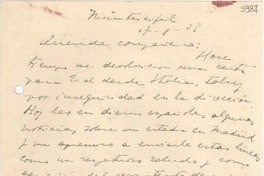 17-9-38
Querida compañera: Hace
tiempo me devolvieron una carta
para Ud. desde Italia, tal vez
por inseguridad en la dirección
Hoy leo en diarios españoles algunas
noticias sobre su estada en Madrid
y me apresuro a enviarle estas líneas
como un respetuoso saludo y como